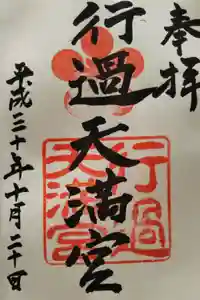 奉拝
行過天満宮
行過
天満宮
平成三十年十月二十日